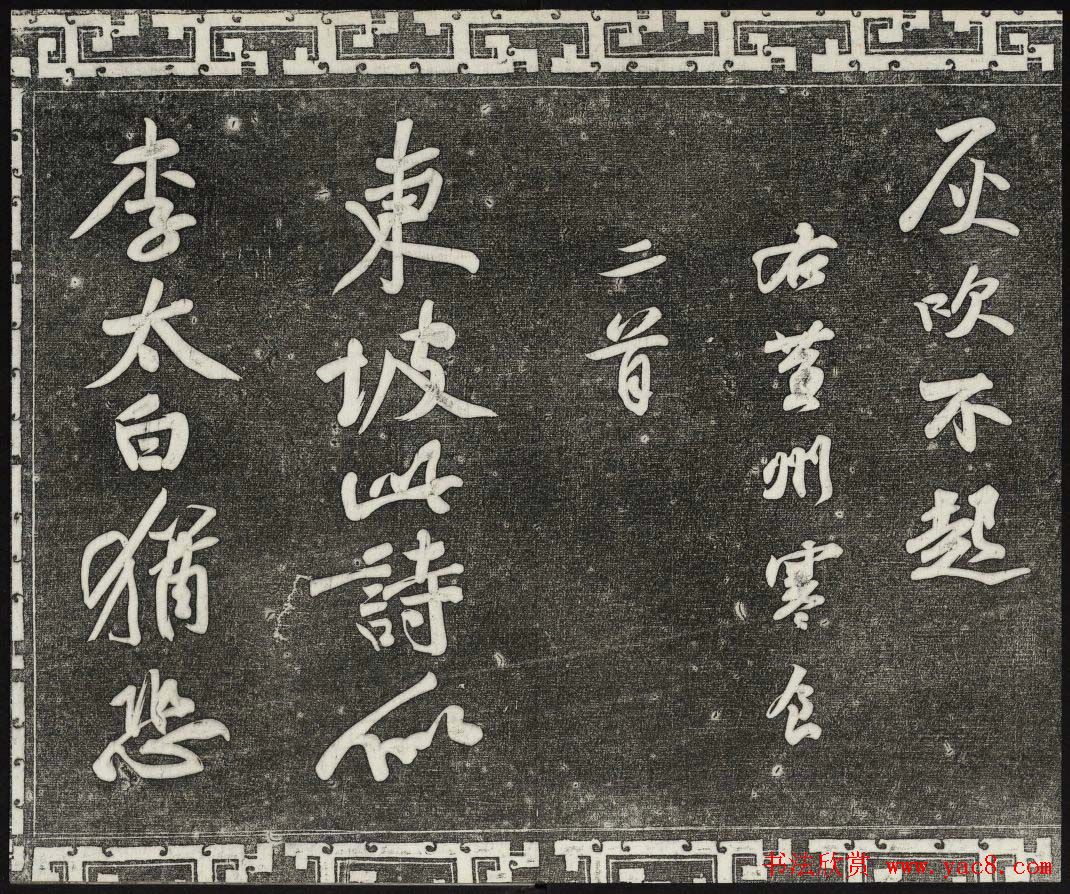 灰吹不起
右黄州寒食
二首
東坡此詩似
李太白猶恐
书法欣赏 www.yac8.com